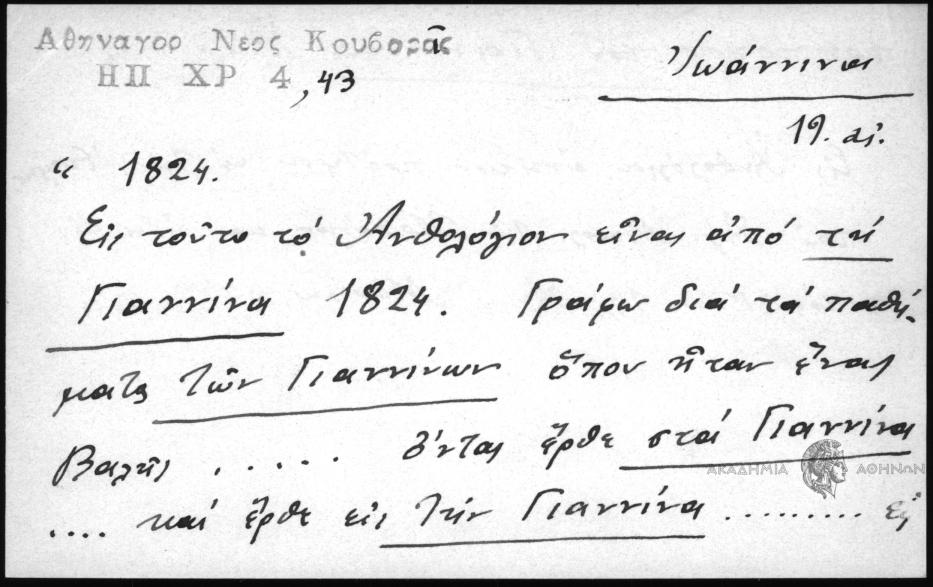 Αθηναγορ Νεος Κουβαρᾶς
ΗΠ ΧΡ 4,43
Ἰωάννινα
19. αἰ.
“ 1824.
Εἰς τοῦτο τὸ Ἀνθολόγιον εἶναι ἀπό τή
Γιαννίνα 1824. Γράφω διά τά παθή-
ματα τῶν Γιαννίνων ὅπου ἦταν ἕνας
Βαλῆς ..... ὄντας ἦρθε στά Γιαννίνα
.... καί ἦρθε εἰς τήν Γιαννίνα ......... εἰς
ΑΚΑΔΗΜΙΑ ΑΘΗΝΩΝ